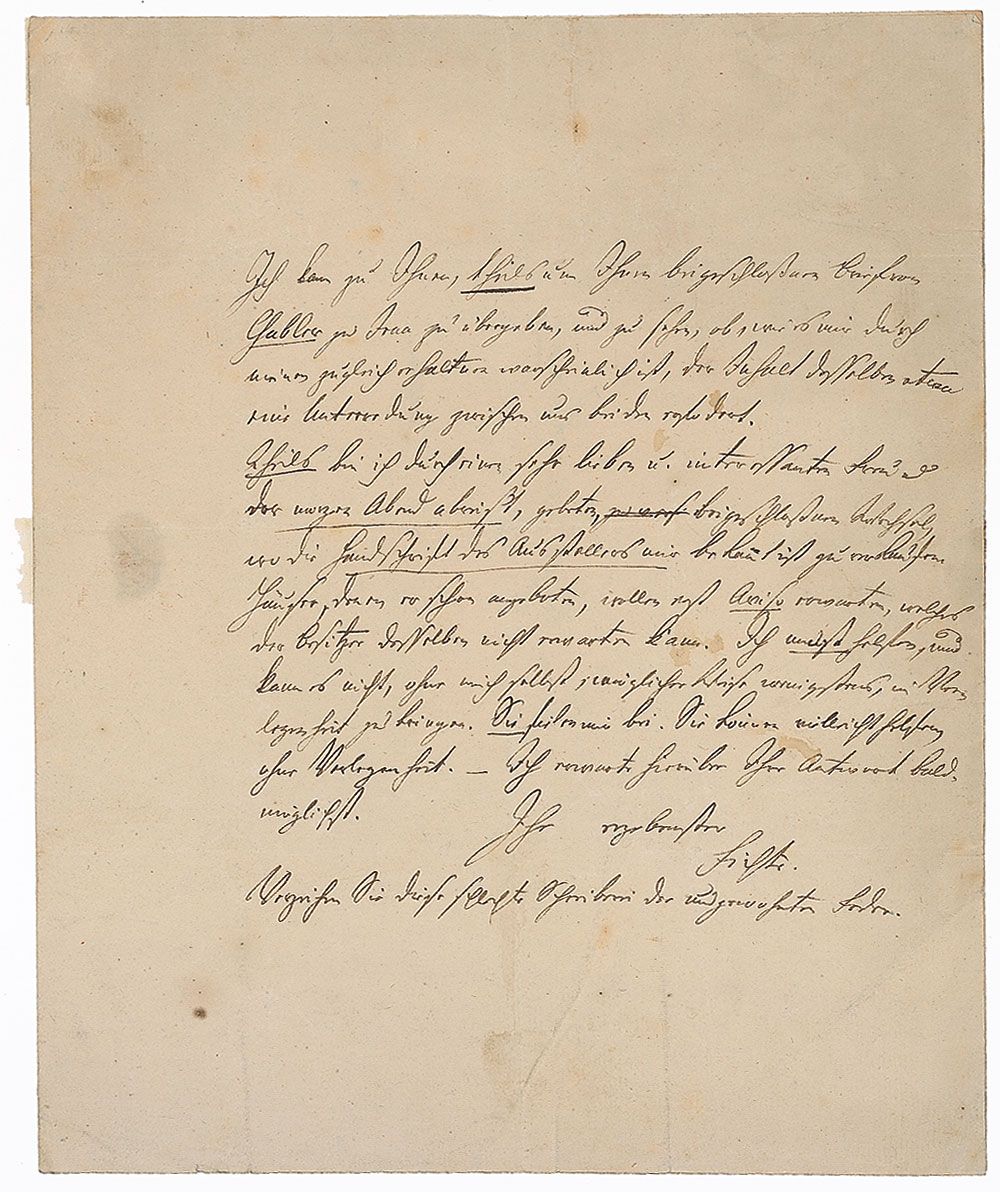 Ich kam zu Ihnen, theils um Ihnen beigeschloßnen Brief von
Gabler zu Jena zu übergeben, und zu sehen, ob, wie es mir durch
meinen zugleich erhaltnen warscheinlich ist, der Inhalt desselben etwa
eine Unterredung zwischen uns beiden erfodert.
Theils bin ich durch einen sehr lieben u. interessanten Freund
der morgen Abend abreis't, gebeten, beigeschloßnen Wechsel,
wo die Handschrift des Ausstellers mir bekannt ist zu verkaufen
Häuser, denen er schon angeboten, wollen erst Aviso erwarten, welches
der Besitzer desselben nicht erwarten kann. Ich muß helfen, und
kann es nicht, ohne mich selbst, möglicher Weise wenigstens, in Ver-
legenheit zu bringen. Sie fielen mir bei. Sie können vielleicht helfen
ohne Verlegenheit. – Ich erwarte hierüber Ihre Antwort bald-
möglichst.
Ihr ergebenster
Fichte.
Verzeihen Sie diese schlechte Schreiberei der ungewohnten Feder.